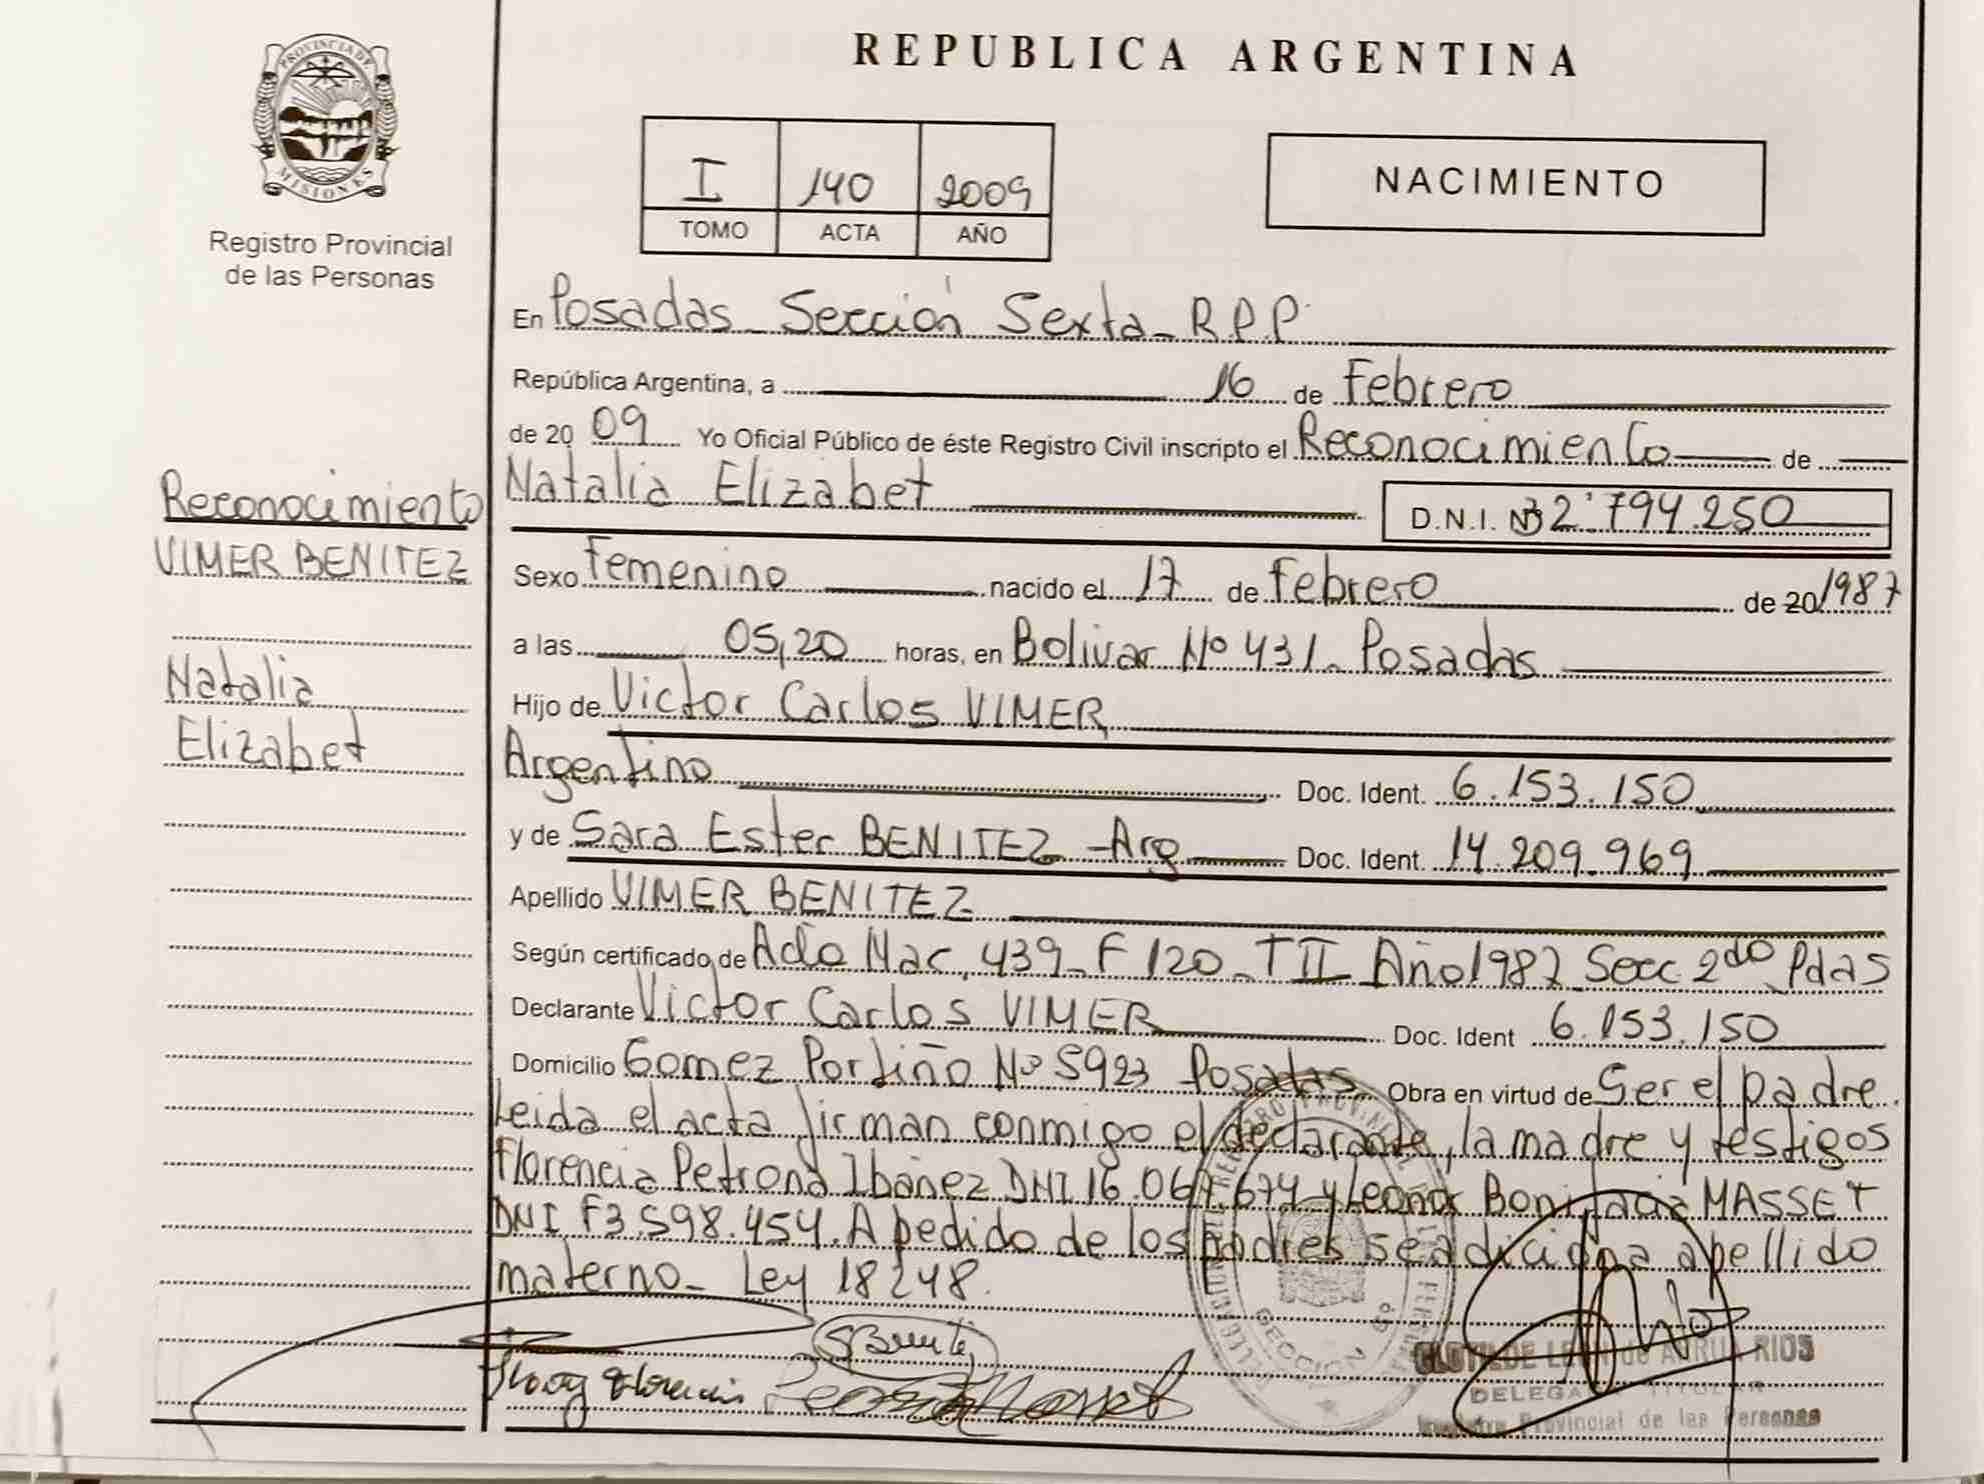 PROVINCIA DE
MISIONES
Registro Provincial
de las Personas
REPUBLICA ARGENTINA
I 140 2009
TOMO ACTA AÑO
NACIMIENTO
En Posadas Sección Sexta - R.P.P.
República Argentina, a 16 de Febrero
de 20 09 Yo Oficial Público de éste Registro Civil inscripto el Reconocimiento de
Natalia Elizabet D.N.I. Nº 32.794.250
Reconocimiento
VIMER BENITEZ
Natalia
Elizabet
Sexo Femenino nacido el 17 de Febrero de 20 1987
a las 05,20 horas, en Bolivar Nº 431 - Posadas
Hijo de Victor Carlos VIMER
Argentino Doc. Ident. 6.153.150
y de Sara Ester BENITEZ - Arg Doc. Ident. 14.209.969
Apellido VIMER BENITEZ
Según certificado de Acta Nac. 439 - F 120 - T II Año 1987 Secc 2do Pdas
Declarante Victor Carlos VIMER Doc. Ident 6.153.150
Domicilio Gomez Portiño Nº 5923 Posadas Obra en virtud de Ser el padre.
Leida el acta firman conmigo el declarante, la madre y testigos
Florencia Petrona Ibañez DNI 16.067.674 y Leonor Bonifacia MASSET
DNI F3.598.454. A pedido de los padres se adiciona apellido
materno - Ley 18248.
SECCION 6º
RIOS
DELEGADA TITULAR
Registro Provincial de las Personas